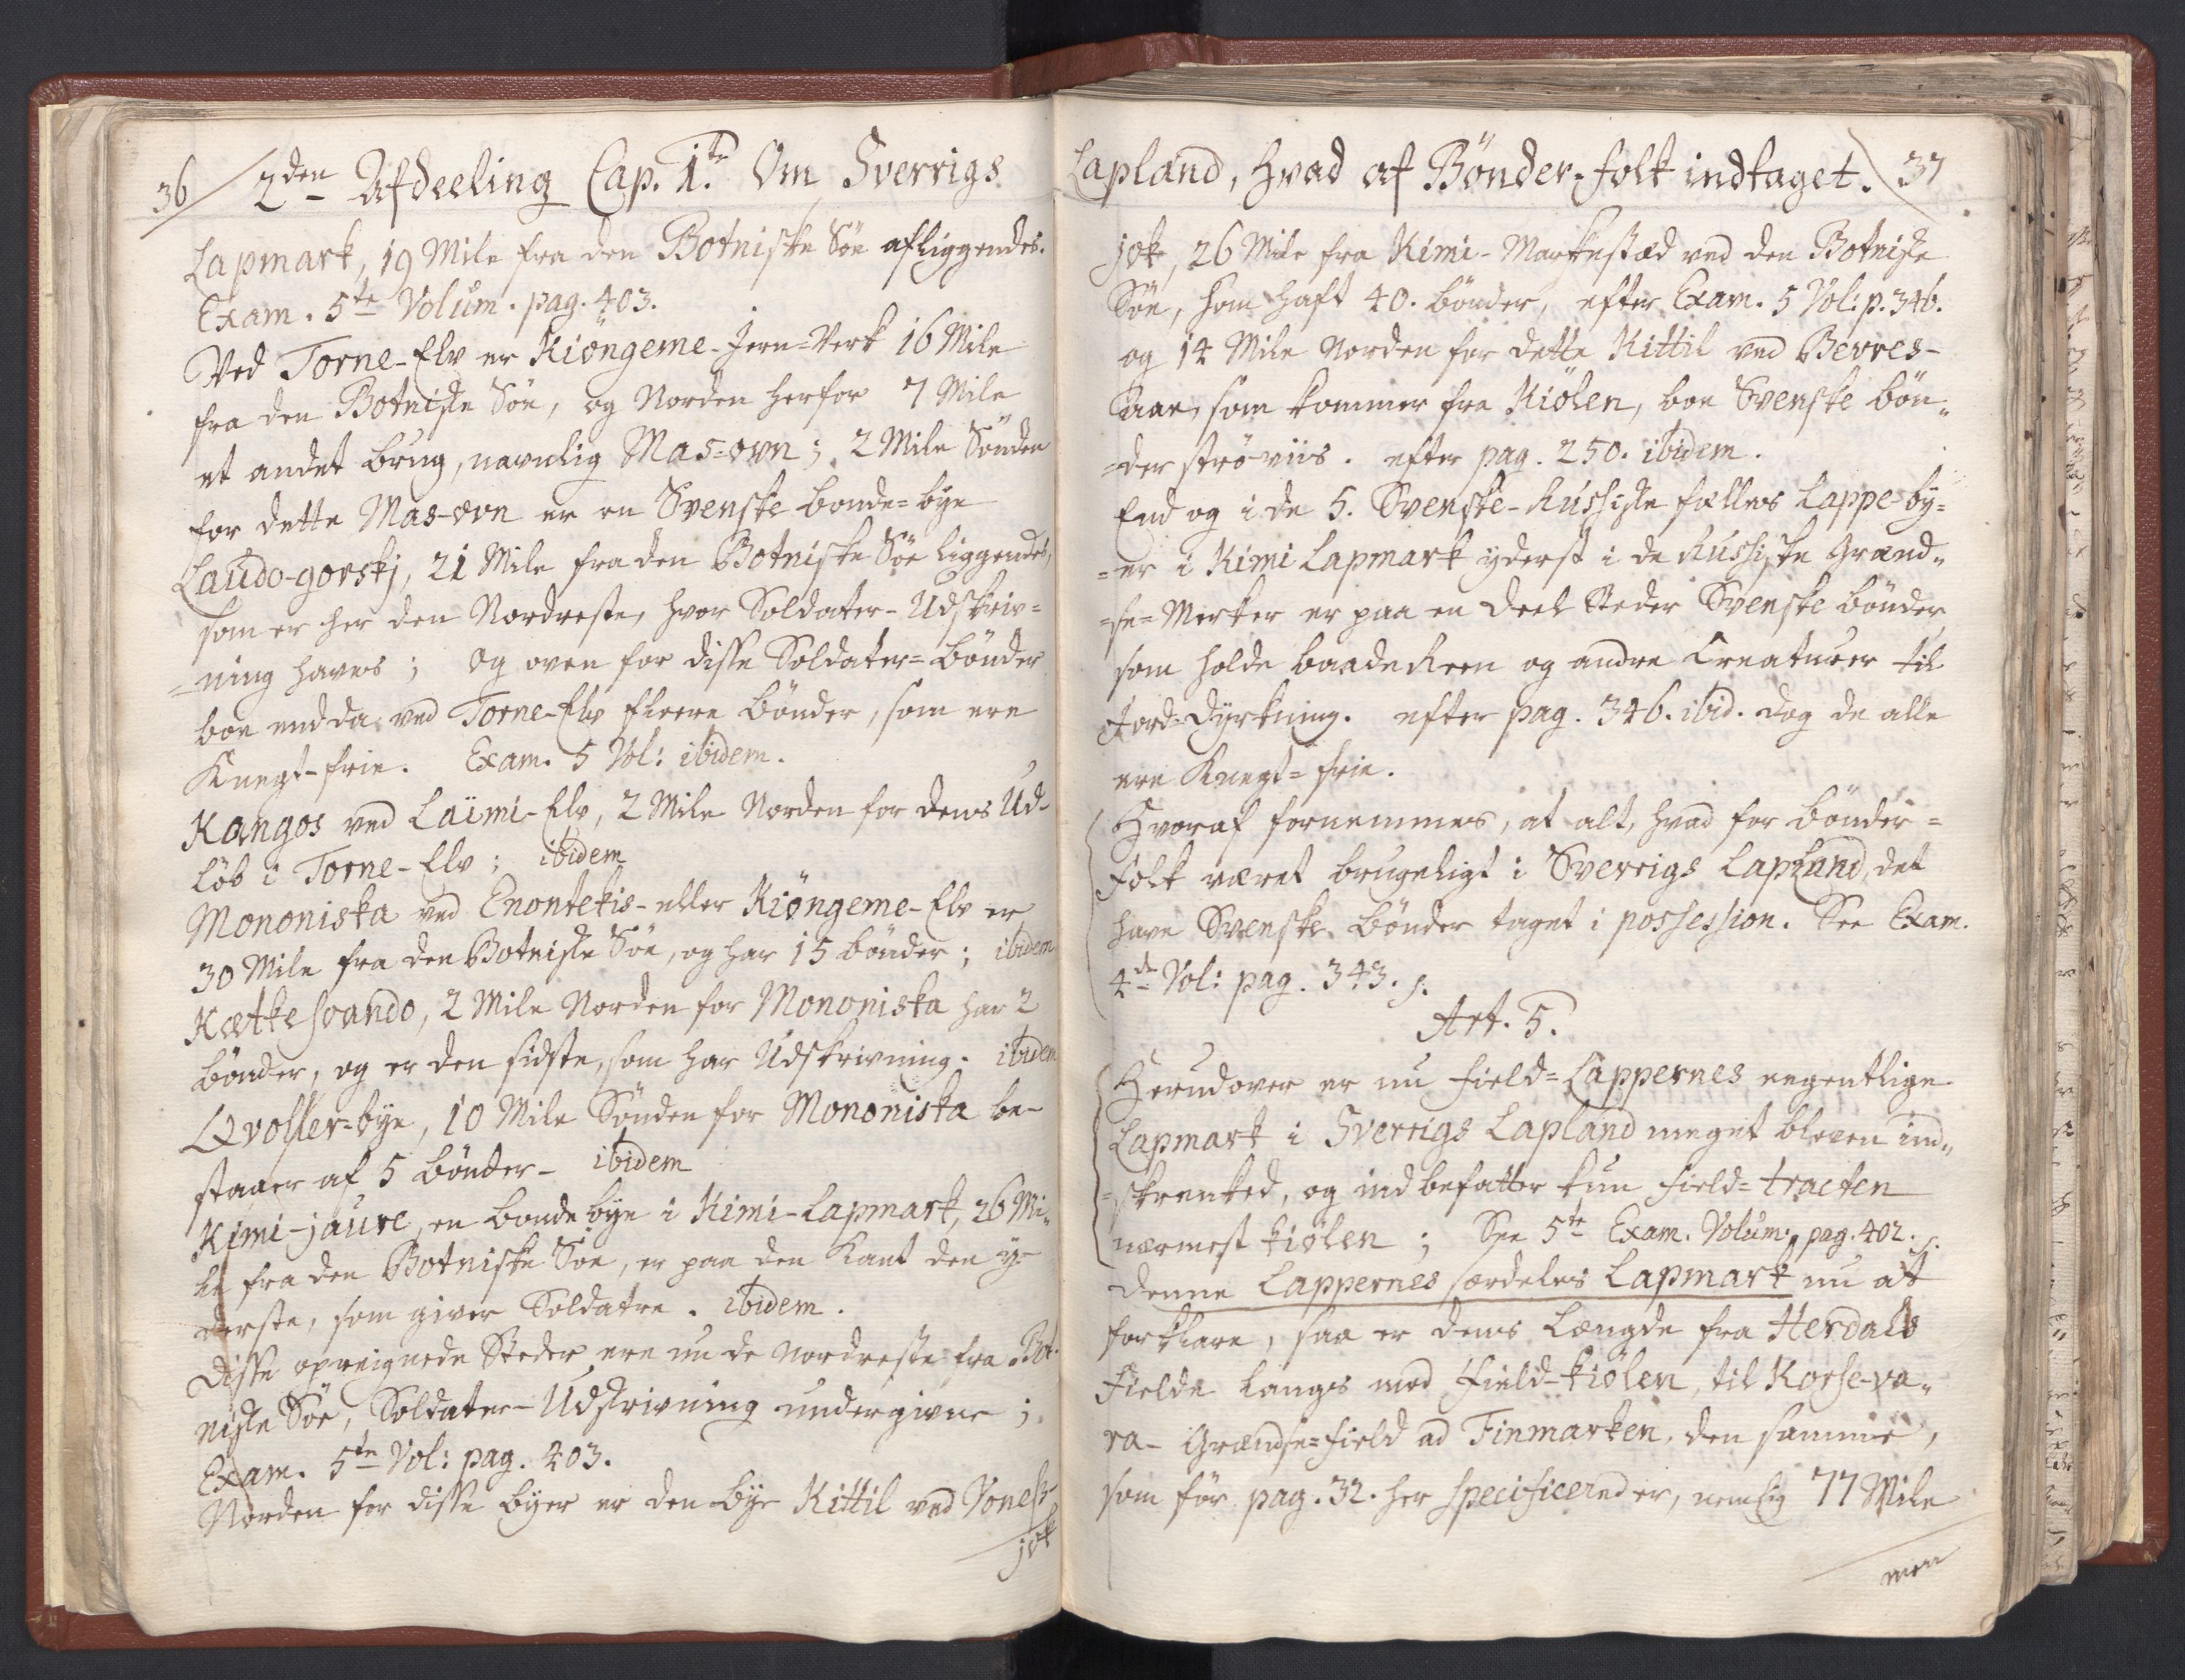 36 / 2den Afdeeling Cap. 1.te Om Sverrigs
Lapmark, 19 Mile fra den Botniske Søe afliggendes.
Exam. 5te Volum. pag. 403.
Ved Torne-Elv er Kiöngeme-Jern=Verk 16 Mile
fra den Botniske Söe, og Norden herfor 7 Mile
et andet brug, navnlig Mas=ovn; 2 Mile Sönden
for dette Mas-ovn er en Svenske bonde=bye
Laudo-gorskj, 21 Mile fra den Botniske Söe liggendes,
som er her den Nordreste, hvor Soldater-Udskriv=
=ning haves; og oven for disse Soldater=bönder
boe endda ved Torne-Elv fleere bönder, som ere
Knegt-frie. Exam. 5 Vol: ibidem.
Kangos ved Laïmi-Elv, 2 Mile Norden for dens Ud-
löb i Torne-Elv; ibidem
Mononiska ved Enontekis- eller Kiöngeme-Elv er
30 Mile fra den Botniske Söe, og har 15 bönder; ibidem
Kætkesvando, 2 Mile Norden for Mononiska har 2
bönder, og er den sidste, som har Udskrivning. ibidem
Qvoller=bye, 10 Mile Sönden for Mononiska be-
staaer af 5 bönder- ibidem
Kimi-jaure, en bonde bye i Kimi-Lapmark, 26 Mi-
le fra den Botniske Söe, er paa den Kant den y-
derste, som giver Soldatre. ibidem.
Disse opreignede Steder ere nu de Nordreste fra Bot-
niske Söe, Soldater-Udskrivning undergivne;
Exam. 5te Vol: pag. 403.
Norden for disse byer er den bye Kittil ved Vones-
jok
Lapland, hvad af Bönder-folk indtaget. 37
jok, 26 Mile fra Kimi-Markestæd ved den Botniske
Söe, som haft 40. bönder, efter Exam. 5 Vol: p. 346.
og 14 Mile Norden for dette Kittil ved Bevres-
Aae, som kommer fra Kiölen, boe Svenske bön-
=der ströviis. efter pag. 250. ibidem.
End og i de 5. Svenske-Russiske fælles Lappe-by=
=er i Kimi Lapmark yderst i de Russiske Grænd-
=se=Merker er paa en deel Steder Svenske bönder
som holde baade Reen og andre Creaturer til
Jord=Dyrkning. efter pag. 346. ibid. dog de alle
ere Knegt=frie.
Hvoraf fornemmes, at alt, hvad for bönder=
folk været brugeligt i Sverrigs Lapland, det
have Svenske bönder taget i possession. See Exam.
4de Vol: pag. 343. s.
Art. 5.
Herudover er nu field=Lappernes eegentlige
Lapmark i Sverrigs Lapland meget bleven ind-
=skrenked, og indbefatter kun field=tracten
nærmest kiölen; See 5te Exam. Volum. pag. 402. s.
Denne Lappernes særdeles Lapmark nu at
forklare, saa er dens Længde fra Herdals
Fielde langs med field-kiölen, til Korse-va-
ra- Grændse=field ad Finmarken, den samme,
som för pag. 32. her specificered er, nemlig 77 Mile
men